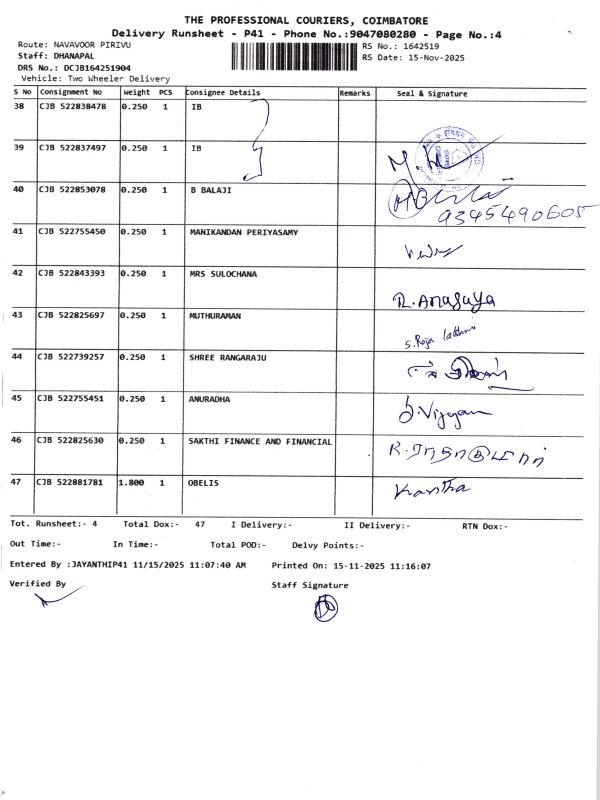 THE PROFESSIONAL COURIERS, COIMBATORE
Delivery Runsheet - P41 - Phone No.:9047080280 - Page No.:4
Route: NAVAVOOR PIRIVU RS No.: 1642519
Staff: DHANAPAL RS Date: 15-Nov-2025
DRS No.: DCJB164251904
Vehicle: Two Wheeler Delivery
S No Consignment No Weight PCS Consignee Details Remarks Seal & Signature
38 CJB 522838478 0.250 1 IB
39 CJB 522837497 0.250 1 IB
40 CJB 522853078 0.250 1 B BALAJI
9345490605
41 CJB 522755450 0.250 1 MANIKANDAN PERIYASAMY
42 CJB 522843393 0.250 1 MRS SULOCHANA
R. Anasuya
43 CJB 522825697 0.250 1 MUTHURAMAN
S. Roja lakshmi
44 CJB 522739257 0.250 1 SHREE RANGARAJU
45 CJB 522755451 0.250 1 ANURADHA
J. Vijayan
46 CJB 522825630 0.250 1 SAKTHI FINANCE AND FINANCIAL
47 CJB 522881781 1.800 1 OBELIS
Kavitha
Tot. Runsheet:- 4 Total Dox:- 47 I Delivery:- II Delivery:- RTN Dox:-
Out Time:- In Time:- Total POD:- Delvy Points:-
Entered By :JAYANTHIP41 11/15/2025 11:07:40 AM Printed On: 15-11-2025 11:16:07
Verified By Staff Signature